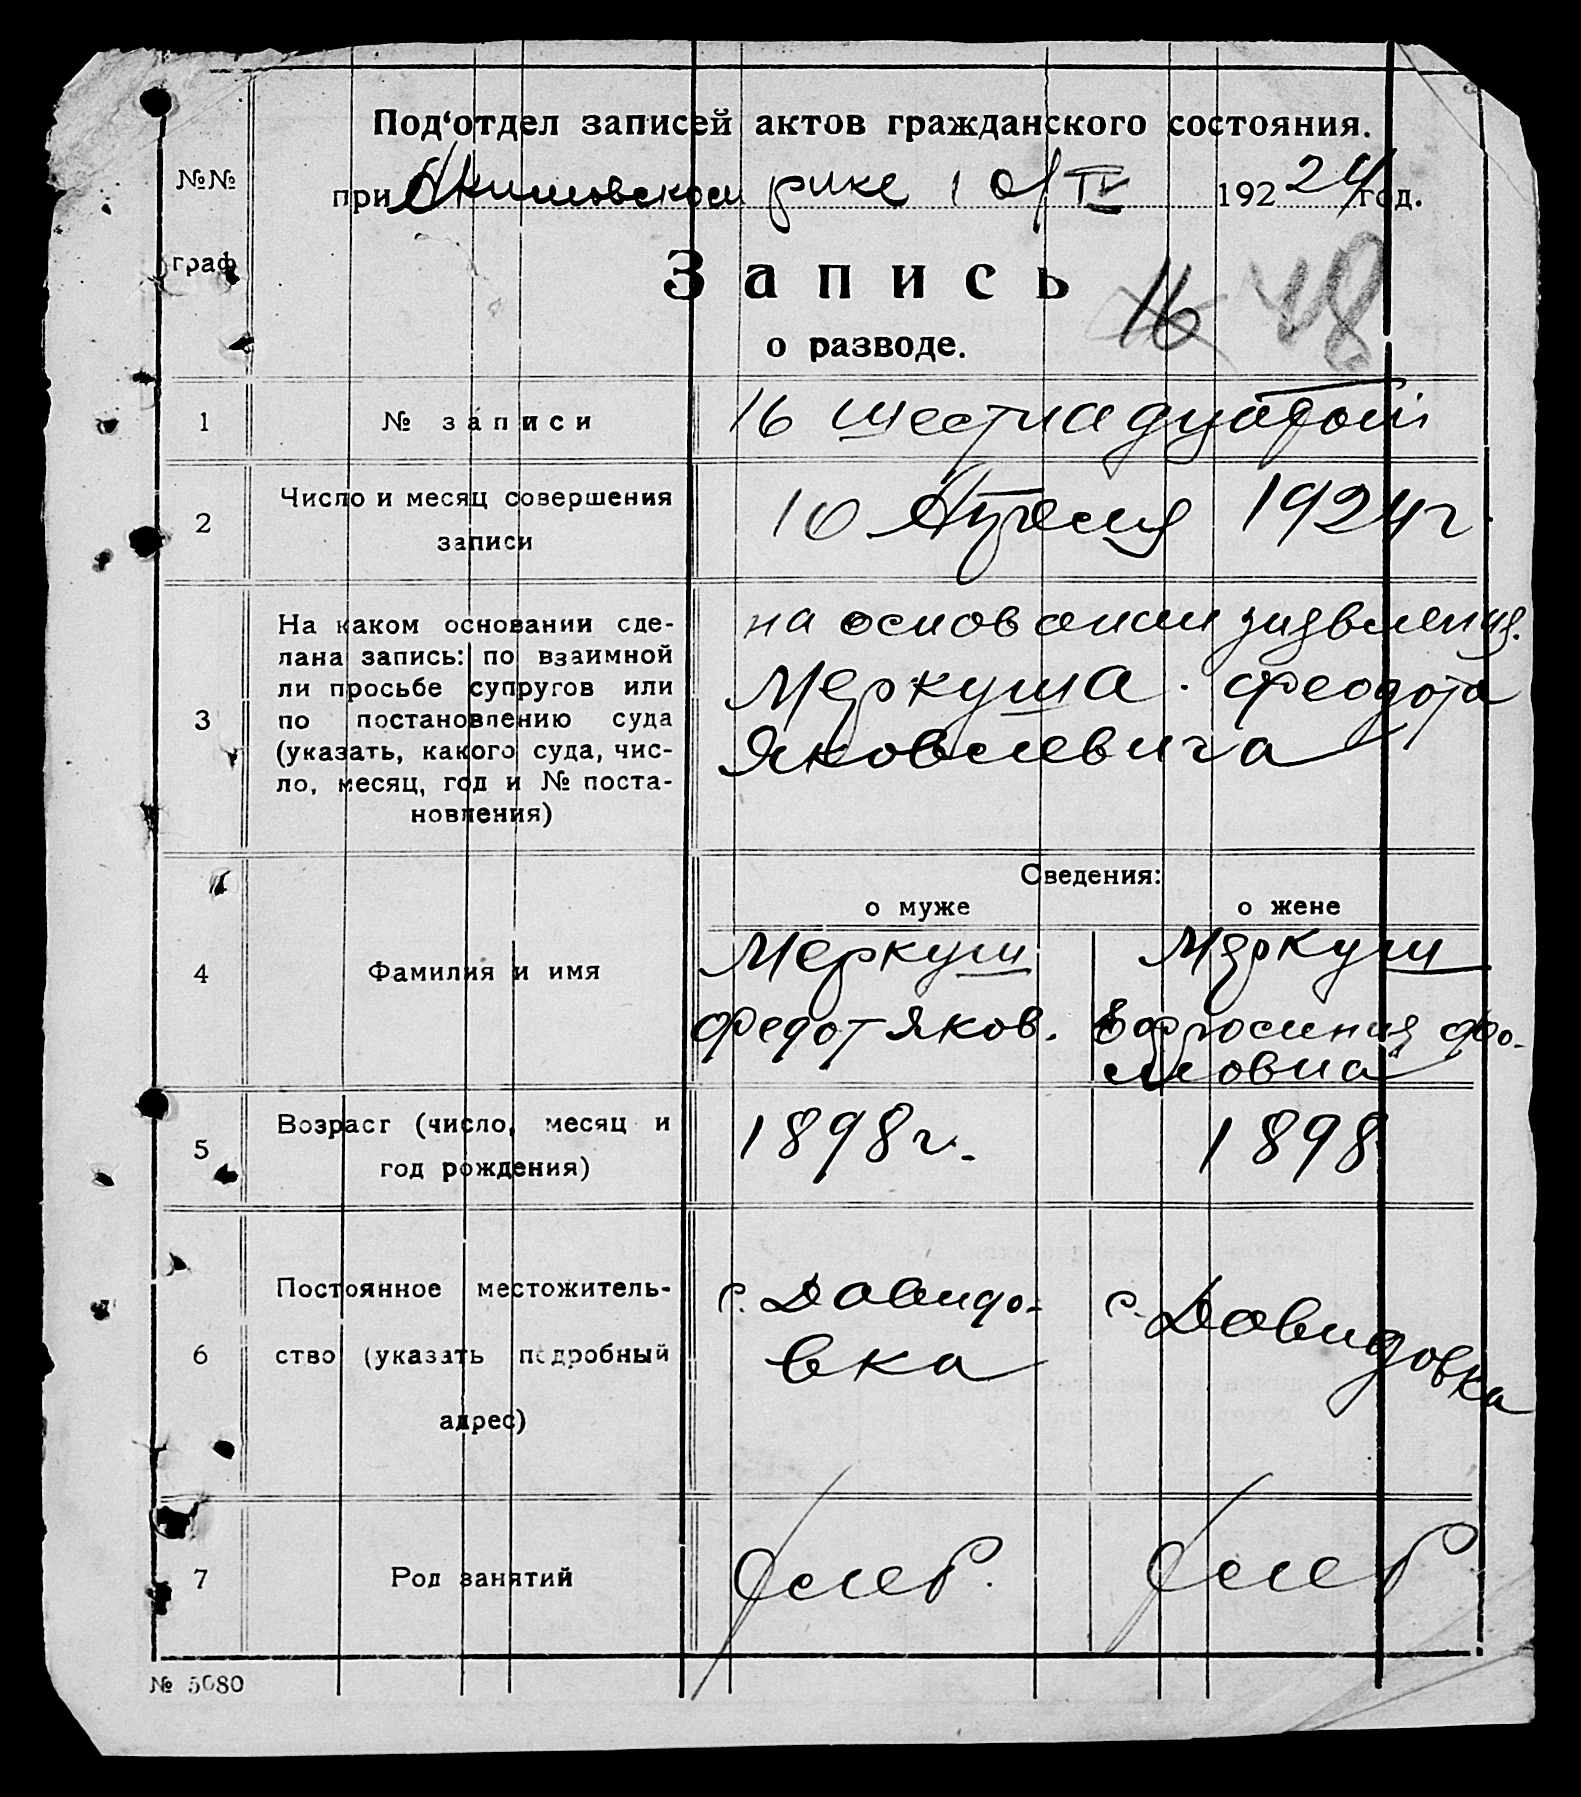 Под‘отдел записей актов гражданского состояния.
при Акимовском рике 10/IV 1922 24 год.
№№
граф
Запись
16 48
о разводе.
1 № записи 16 шестнадцатой
2 Число и месяц совершения записи
10 Апреля 1924 г.
3 На каком основании сде-
лана запись: по взаимной
ли просьбе супругов или
по постановлению суда
(указать, какого суда, чис-
ло, месяц, год и № поста-
новления)
на основании заявления
Меркуша Феодота
Яковлевича
Сведения:
о муже о жене
4 Фамилия и имя
Меркуш
Федот Яков.
Меркуш
Ефросиния Фо-
мовна
5 Возраст (число, месяц и
год рождения)
1898 г. 1898
6 Постоянное местожитель-
ство (указать подробный
адрес)
с. Давидо-
вка
с. Давидовка
7 Род занятий
хлеб. хлеб
№ 5080